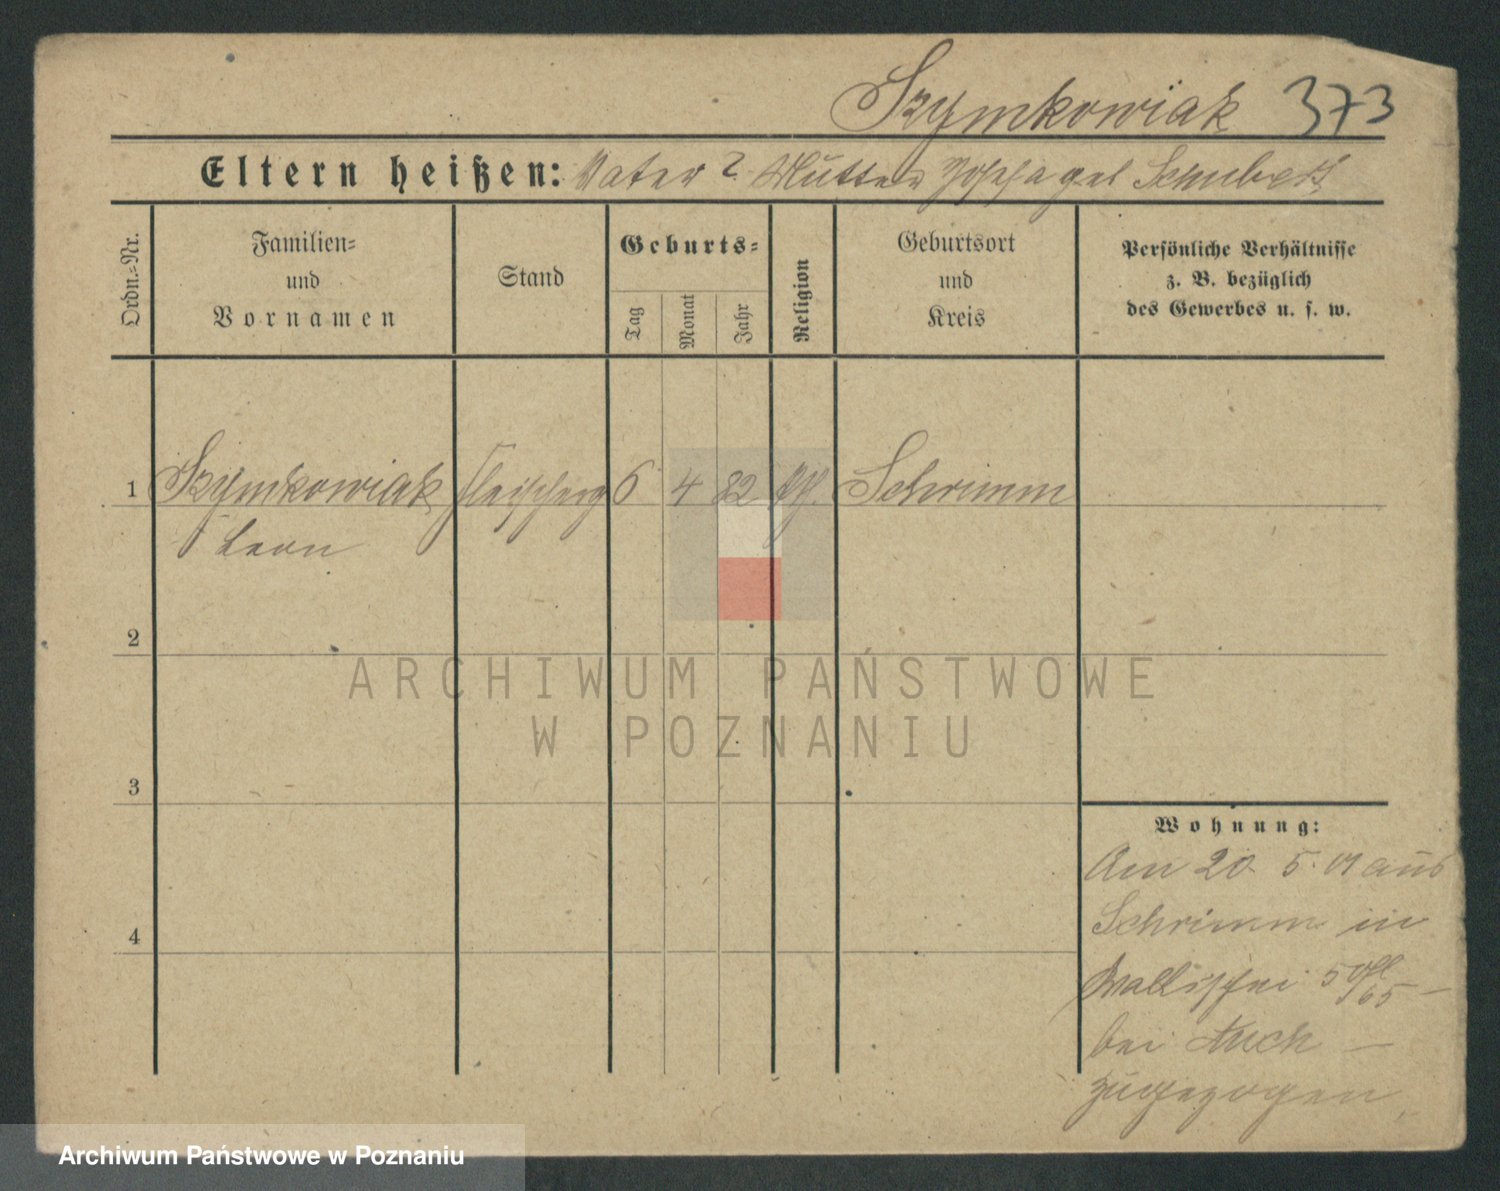 Szymkowiak 373
Eltern heißen: Vater ? Mutter Schubert
Ordn.-Nr.
Familien-
und
Vornamen
Stand
Geburts-
Tag
Monat
Jahr
Religion
Geburtsort
und
Kreis
Persönliche Verhältnisse
z. B. bezüglich
des Gewerbes u. s. w.
1 Szymkowiak 6 4 82 Schrimm
Leon
2
3
4
Wohnung:
Am 20. 5. 01 aus
Schrimm in
Wallischei
bei
zugezogen
ARCHIWUM PAŃSTWOWE
W POZNANIU
Archiwum Państwowe w Poznaniu